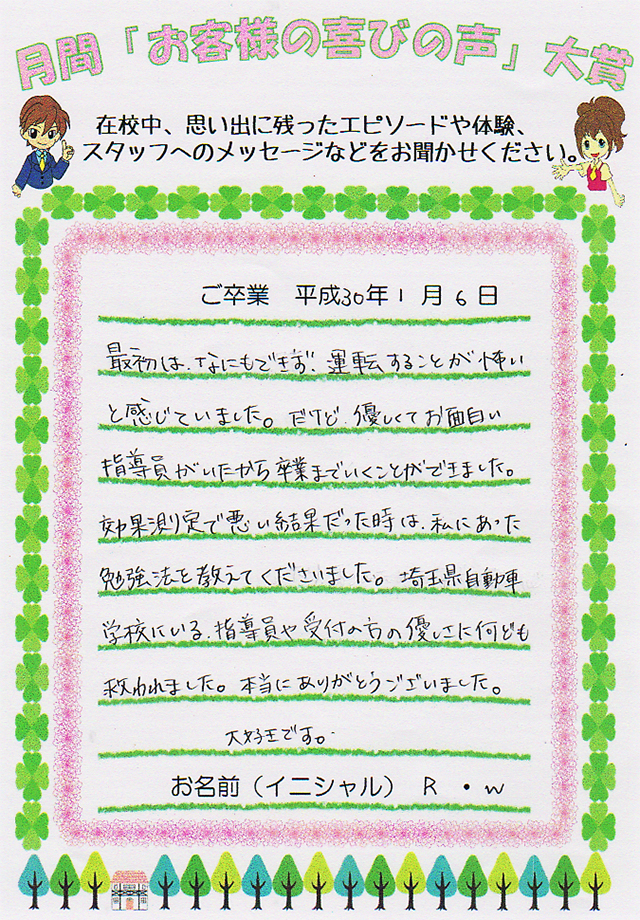 月間「お客様の喜びの声」大賞
在校中、思い出に残ったエピソードや体験、
スタッフへのメッセージなどをお聞かせください。
ご卒業 平成30年1月6日
最初は、なにもできず、運転することが怖い
と感じていました。だけど、優しくてお面白い
指導員がいたから卒業までいくことができました。
効果測定で悪い結果だった時は、私にあった
勉強法を教えてくださいました。埼玉県自動車
学校にいる、指導員や受付の方の優しさに何ども
救われました。本当にありがとうございました。
大好きです。
お名前(イニシャル) R・w